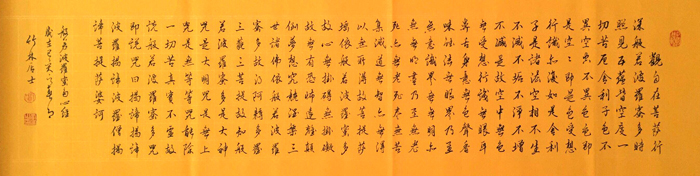 觀自在菩薩行
深般若波羅蜜多時
照見五蘊皆空度一
切苦厄舍利子色不
異空空不異色色即
是空空即是色受想
行識亦復如是舍利
子是諸法空相不生
不滅不垢不淨不增
不減是故空中無色
無受想行識無眼耳
鼻舌身意無色聲香
味觸法無眼界乃至
無意識界無無明亦
無無明盡乃至無老
死亦無老死盡無苦
集滅道無智亦無得
以無所得故菩提薩
埵依般若波羅蜜多
故心無掛礙無掛礙
故無有恐怖遠離顛
倒夢想究竟涅槃三
世諸佛依般若波羅
蜜多故得阿耨多羅
三藐三菩提故知般
若波羅蜜多是大神
咒是大明咒是無上
咒是無等等咒能除
一切苦真實不虛故
說般若波羅蜜多咒
即說咒曰揭諦揭諦
波羅揭諦波羅僧揭
諦菩提薩婆訶
般若波羅蜜多心經
竹林居士